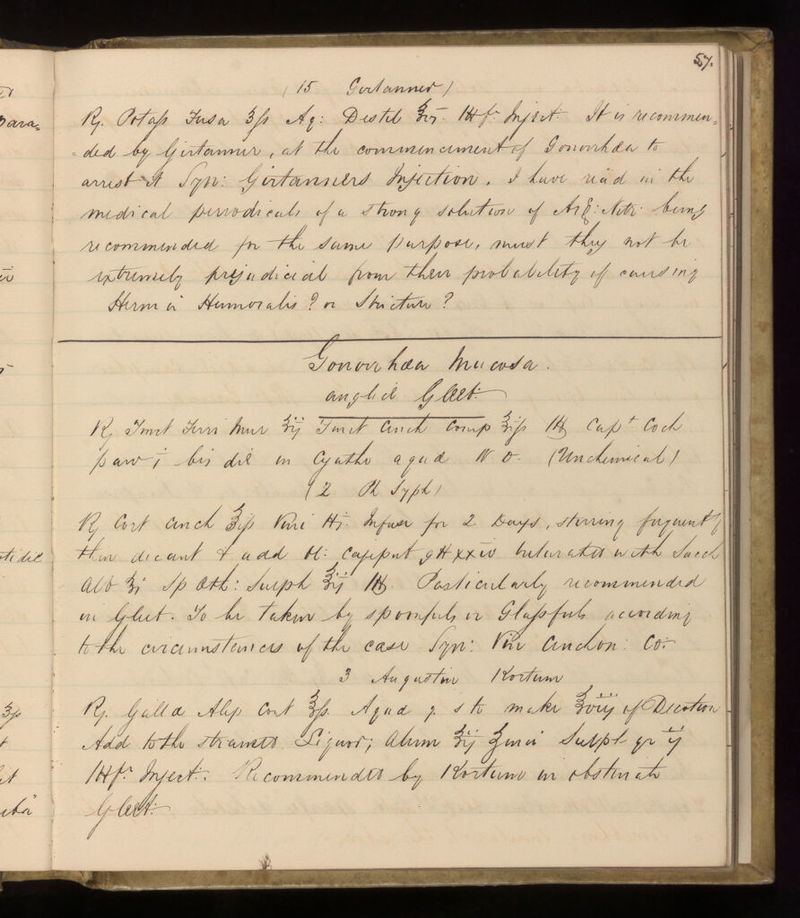 57.
(15 Girtanner)
℞. Potass Fusa ʒſs Aq: Destil ℥vj. M fr. Inject. It is recommen-
ded by Girtanner, at the commencement of Gonorrhœa to
arrest it Syn: Girtanners Injection. I have read in the
medical periodicals of a strong solution of Arg: Nitr: being
recommended for the same purpose, must they not be
extremely prejudicial from their probability of causing
Hernia Humoralis? or Stricture?
Gonorrhœa Mucosa.
anglicè Gleet
℞ Tinct Ferri Mur ʒij Tinct Cinch Comp ℥iſs M Capt Coch
parv j bis die in Cyatho aquæ (Unchemical)
(2 Ph Syph)
℞ Cort Cinch ℥iſs Vini Infuse for 2 Days, stirring frequently
then decant & add Ol: Cajeput gtt xxiv triturated with Sacch
Alb ℥i Sp Æth: Sulph ʒij M. Particularly recommended
in Gleet. To be taken by spoonfuls or Glassfuls according
to the circumstances of the case Syn: Vin Cinchon: Co:
3 Augustin Kortum
℞. Gallæ Alep Cont ℥ſs. Aqua q s to make ℥viij of Decoction
Add to the strained Liquor; Alum ʒij Zinci Sulph gr ij
M fr. Inject. Recommended by Kortum in obstinate
Gleet.